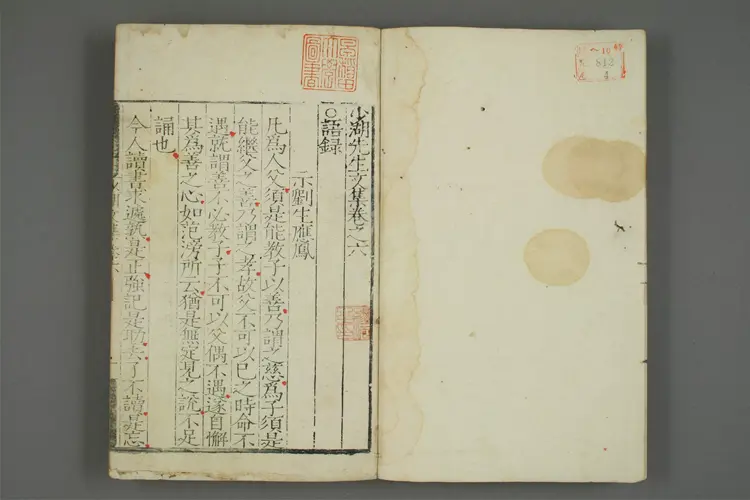 少湖先生文集卷之六
○語録
示劉生應鳳
凡爲人父須是能教子以善乃謂之慈爲子須是
能繼父之善乃謂之孝故父不可以已之時命不
遇就謂善不必教于子不可以父偶不遇遂自懈
其爲善之心如范滂所云猶是無定見之說不足
誦也
今人讀書求遍熟是正強記是助去了不讀是忘
圖書